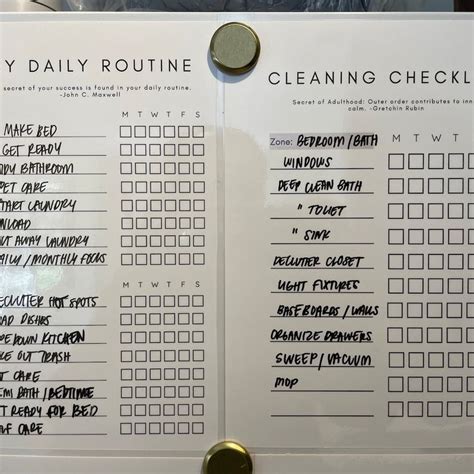 Y DAILY ROUTINE
secret of your success is found in your daily routine.
-John C. Maxwell
M T W T F S
MAKE BED
GET READY
BATHROOM
PET CARE
START LAUNDRY
UNLOAD
PUT AWAY LAUNDRY
DAILY / MONTHLY FOCUS
M T W T F S
DECLUTTER HOT SPOTS
LOAD DISHES
WIPE DOWN KITCHEN
TAKE OUT TRASH
PET CARE
BATH / BEDTIME
GET READY FOR BED
SELF CARE
CLEANING CHECKL
Secret of Adulthood: Outer order contributes to in
calm. -Gretchin Rubin
M T W T
Zone: BEDROOM / BATH
WINDOWS
DEEP CLEAN BATH
" TOILET
" SINK
DECLUTTER CLOSET
LIGHT FIXTURES
BASEBOARDS / WALLS
ORGANIZE DRAWERS
SWEEP / VACUUM
MOP